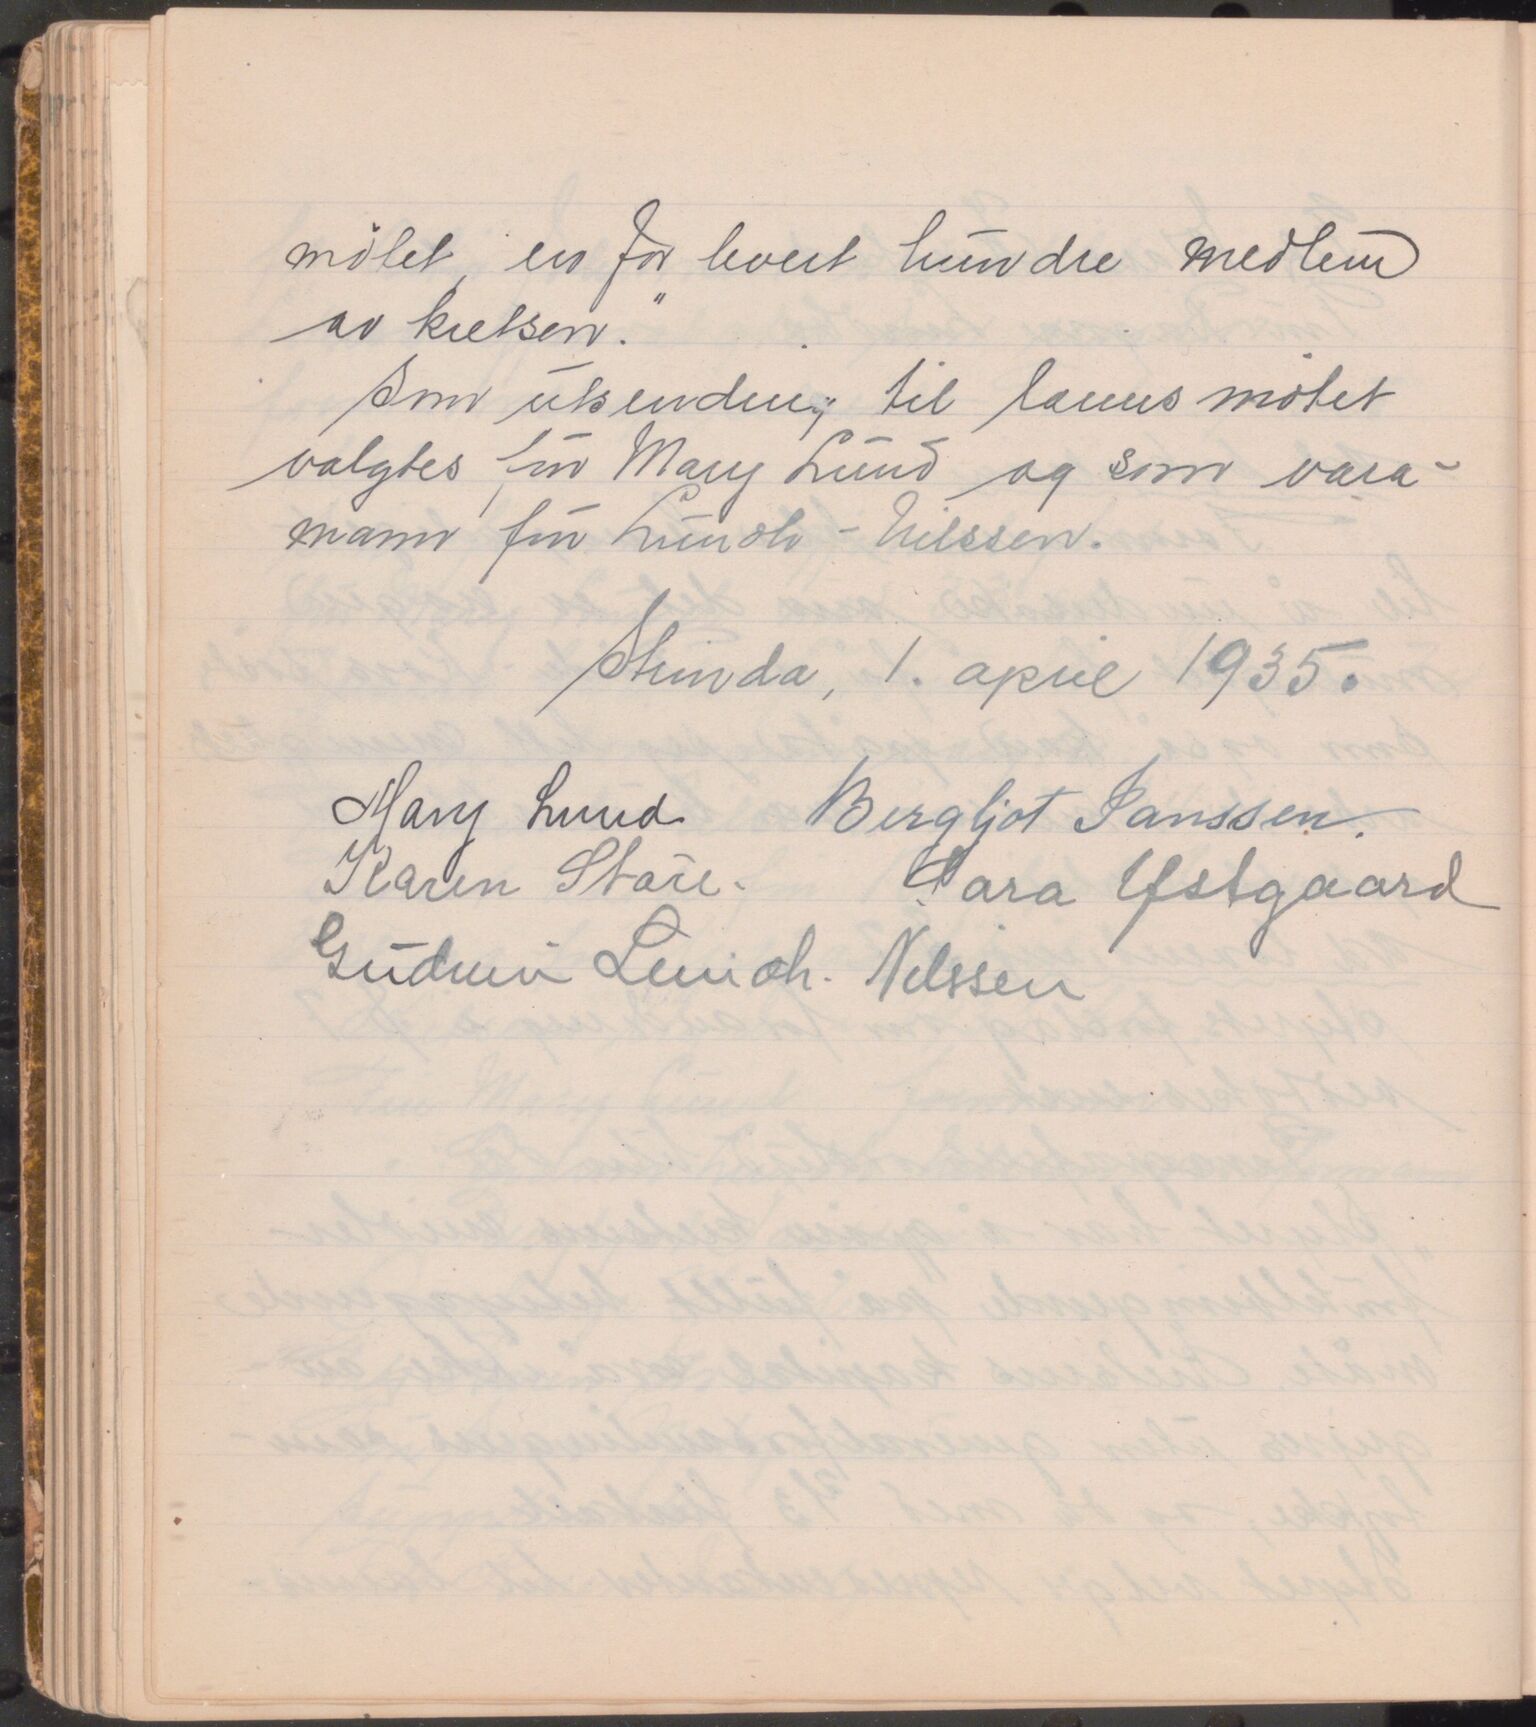 møtet, en for hvert hundre medlem
av kretsen."
Som utsending til landsmøtet
valgtes fru Mary Lund og som vara-
mann fru Lundh-Nilssen.
Strinda, 1. april 1935.
Mary Lund Bergljot Janssen.
Karen Støre. Sara Ystgaard
Gudrun Lundh. Nilssen